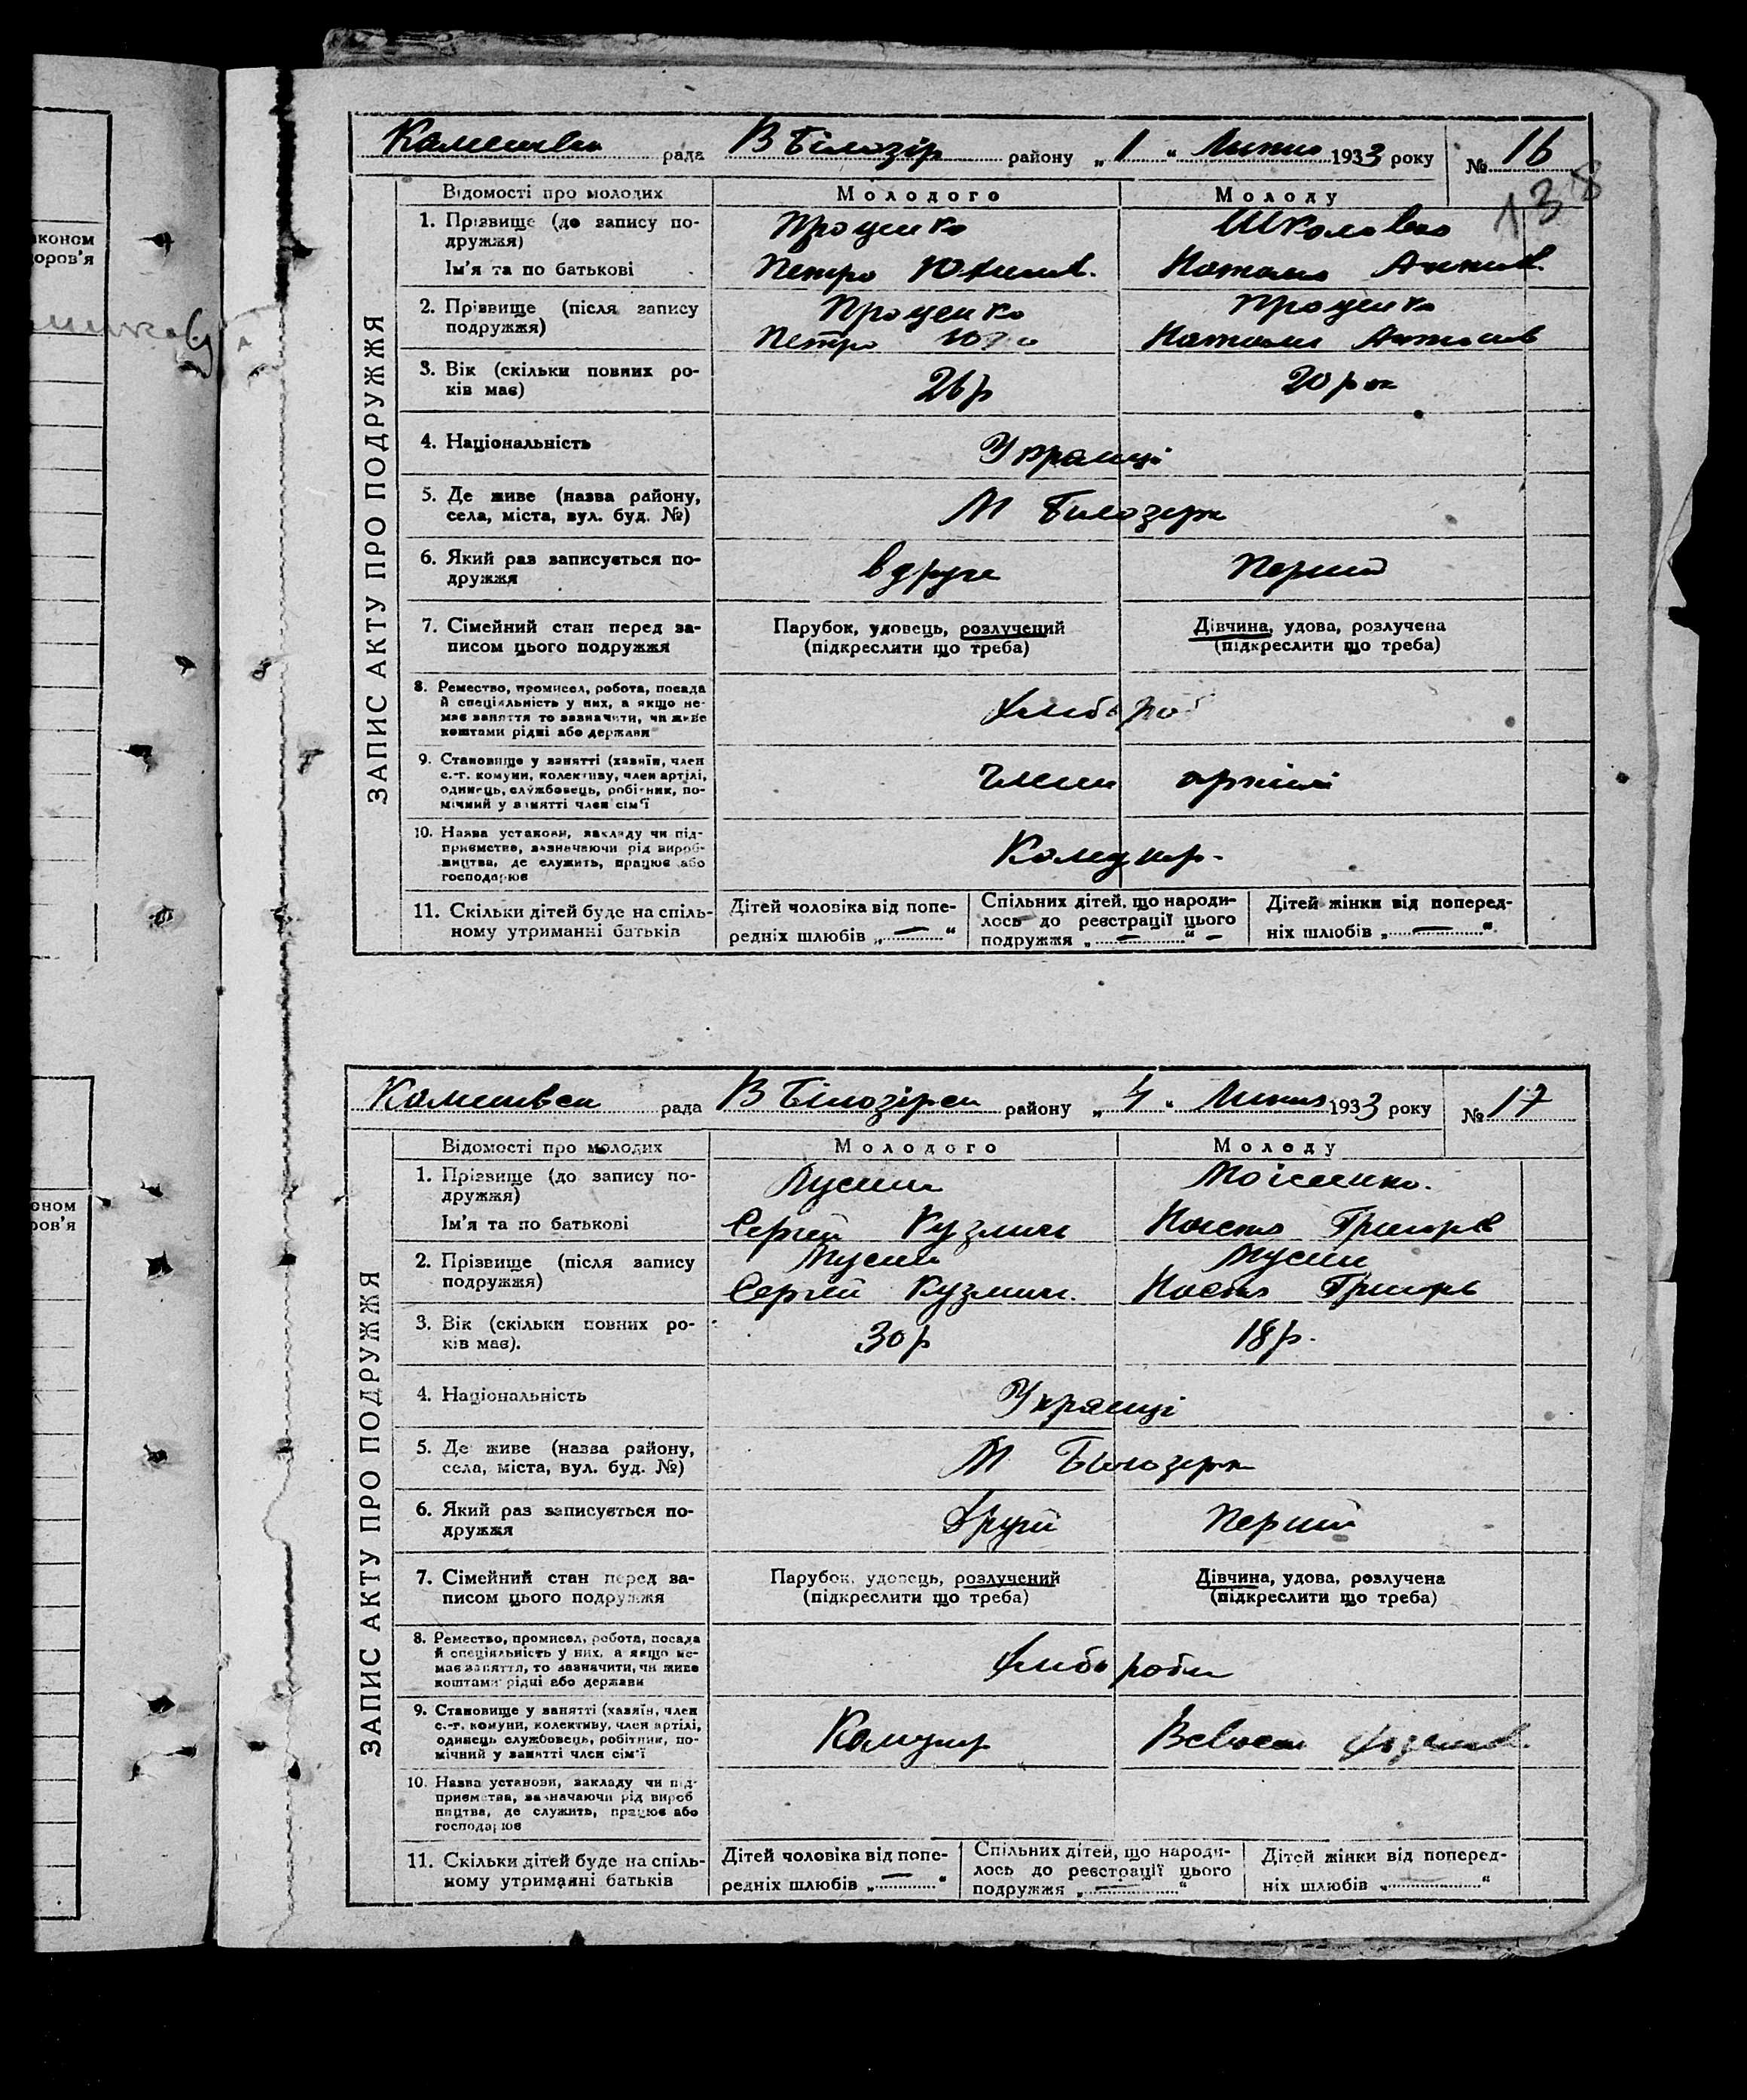 рада В Білозір району „ 1 “ 1933 року № 16
138
Відомості про молодих Молодого Молоду
ЗАПИС АКТУ ПРО ПОДРУЖЖЯ
1. Прізвище (до запису по-
дружжя)
Проценко
Ім'я та по батькові
Петро
2. Прізвище (після запису
подружжя)
Проценко Проценко
Петро
3. Вік (скільки повних ро-
ків має)
26 р 20 рок
4. Національність
Українці
5. Де живе (назва району,
села, міста, вул. буд. №)
М Білозерк
6. Який раз записується по-
дружжя
вдруге Перший
7. Сімейний стан перед за-
писом цього подружжя
Парубок, удовець, розлучений
(підкреслити що треба)
Дівчина, удова, розлучена
(підкреслити що треба)
8. Ремество, промисел, робота, посада
й спеціяльність у них, а якщо не-
має заняття то зазначити, чи живе
коштами рідні або держави
9. Становище у занятті (хазяїн, член
с.-г. комуни, колективу, член артілі,
одинець, службовець, робітник, по-
мічний у занятті член сім'ї
члени артілі
10. Назва установи, закладу чи під-
приємства, зазначаючи рід вироб-
ництва, де служить, працює або
господарює
11. Скільки дітей буде на спіль-
ному утриманні батьків
Дітей чоловіка від попе-
редніх шлюбів „ — “
Спільних дітей, що народи-
лось до реєстрації цього
подружжя „ — “ —
Дітей жінки від поперед-
ніх шлюбів „ — “
рада В Білозірск району „ 4 “ 1933 року № 17
Відомості про молодих Молодого Молоду
ЗАПИС АКТУ ПРО ПОДРУЖЖЯ
1. Прізвище (до запису по-
дружжя)
Мусий Моісеенко.
Ім'я та по батькові
Сергій Кузмич Настя Григорів
2. Прізвище (після запису
подружжя)
Мусий Мусий
Сергій Кузмич. Настя Григорів
3. Вік (скільки повних ро-
ків має).
30 р 18 р.
4. Національність
Українці
5. Де живе (назва району,
села, міста, вул. буд. №)
М. Білозерк
6. Який раз записується по-
дружжя
другий Перший
7. Сімейний стан перед за-
писом цього подружжя
Парубок, удовець, розлучений
(підкреслити що треба)
Дівчина, удова, розлучена
(підкреслити що треба)
8. Ремество, промисел, робота, посада
й спеціяльність у них, а якщо не-
має заняття, то зазначити, чи живе
коштами рідні або держави
9. Становище у занятті (хазяїн, член
с.-г. комуни, колективу, член артілі,
одинець службовець, робітник, по-
мічний у занятті член сім'ї
10. Назва установи, закладу чи під-
приємства, зазначаючи рід вироб
ництва, де служить, працює або
господарює
11. Скільки дітей буде на спіль-
ному утриманні батьків
Дітей чоловіка від попе-
редніх шлюбів „ — “
Спільних дітей, що народи-
лось до реєстрації цього
подружжя „ — “
Дітей жінки від поперед-
ніх шлюбів „ — “